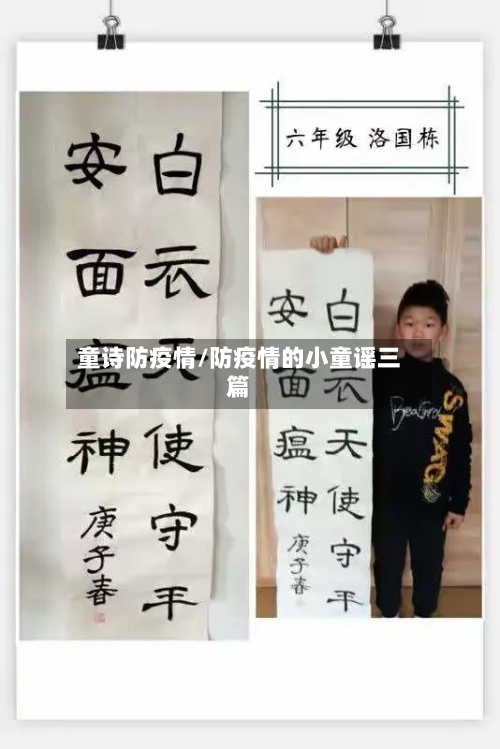 六年级 洛国栋
白衣天使守平
安面瘟神
庚子春
白衣天使守平
安面瘟神
庚子春
童诗防疫情/防疫情的小童谣三
篇
SWAG